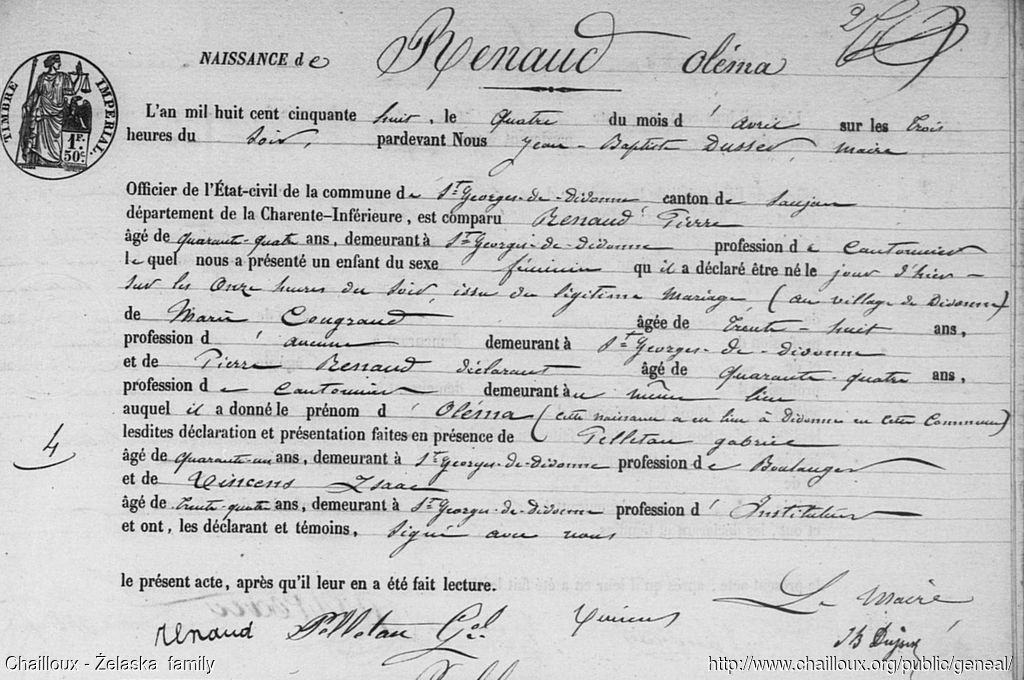 NAISSANCE de Renaud Oléma
TIMBRE IMPERIAL.
1F.
50c.
L'an mil huit cent cinquante huit, le quatre du mois d'avril sur les trois
heures du soir, pardevant Nous Jean-Baptiste maire
Officier de l'État-civil de la commune de St Georges-de-Didonne, canton de Saujon
département de la Charente-Inférieure, est comparu Renaud Pierre
âgé de quarante-quatre ans, demeurant à St Georges-de-Didonne profession de cantonnier
le quel nous a présenté un enfant du sexe féminin qu'il a déclaré être né le jour d'hier
sur les onze heures du soir, issu du légitime mariage (au village de Didonne)
de Marie âgée de trente-huit ans,
profession d'aucune demeurant à St Georges-de-Didonne
et de Pierre Renaud déclarant âgé de quarante-quatre ans,
profession de cantonnier demeurant au même lieu
auquel il a donné le prénom d'Oléma (cette naissance a eu lieu à Didonne en cette Commune)
lesdites déclaration et présentation faites en présence de Pelletan gabriel
âgé de quarante-un ans, demeurant à St Georges-de-Didonne profession de Boulanger
et de Vincens Isaac
âgé de trente-quatre ans, demeurant à St Georges-de-Didonne profession d'Instituteur
4
et ont, les déclarant et témoins, signé avec nous
le présent acte, après qu'il leur en a été fait lecture.
Le Maire
renaud Pelletan Gel. Vincens
Chailloux - Żelaska family
http://www.chailloux.org/public/geneal/